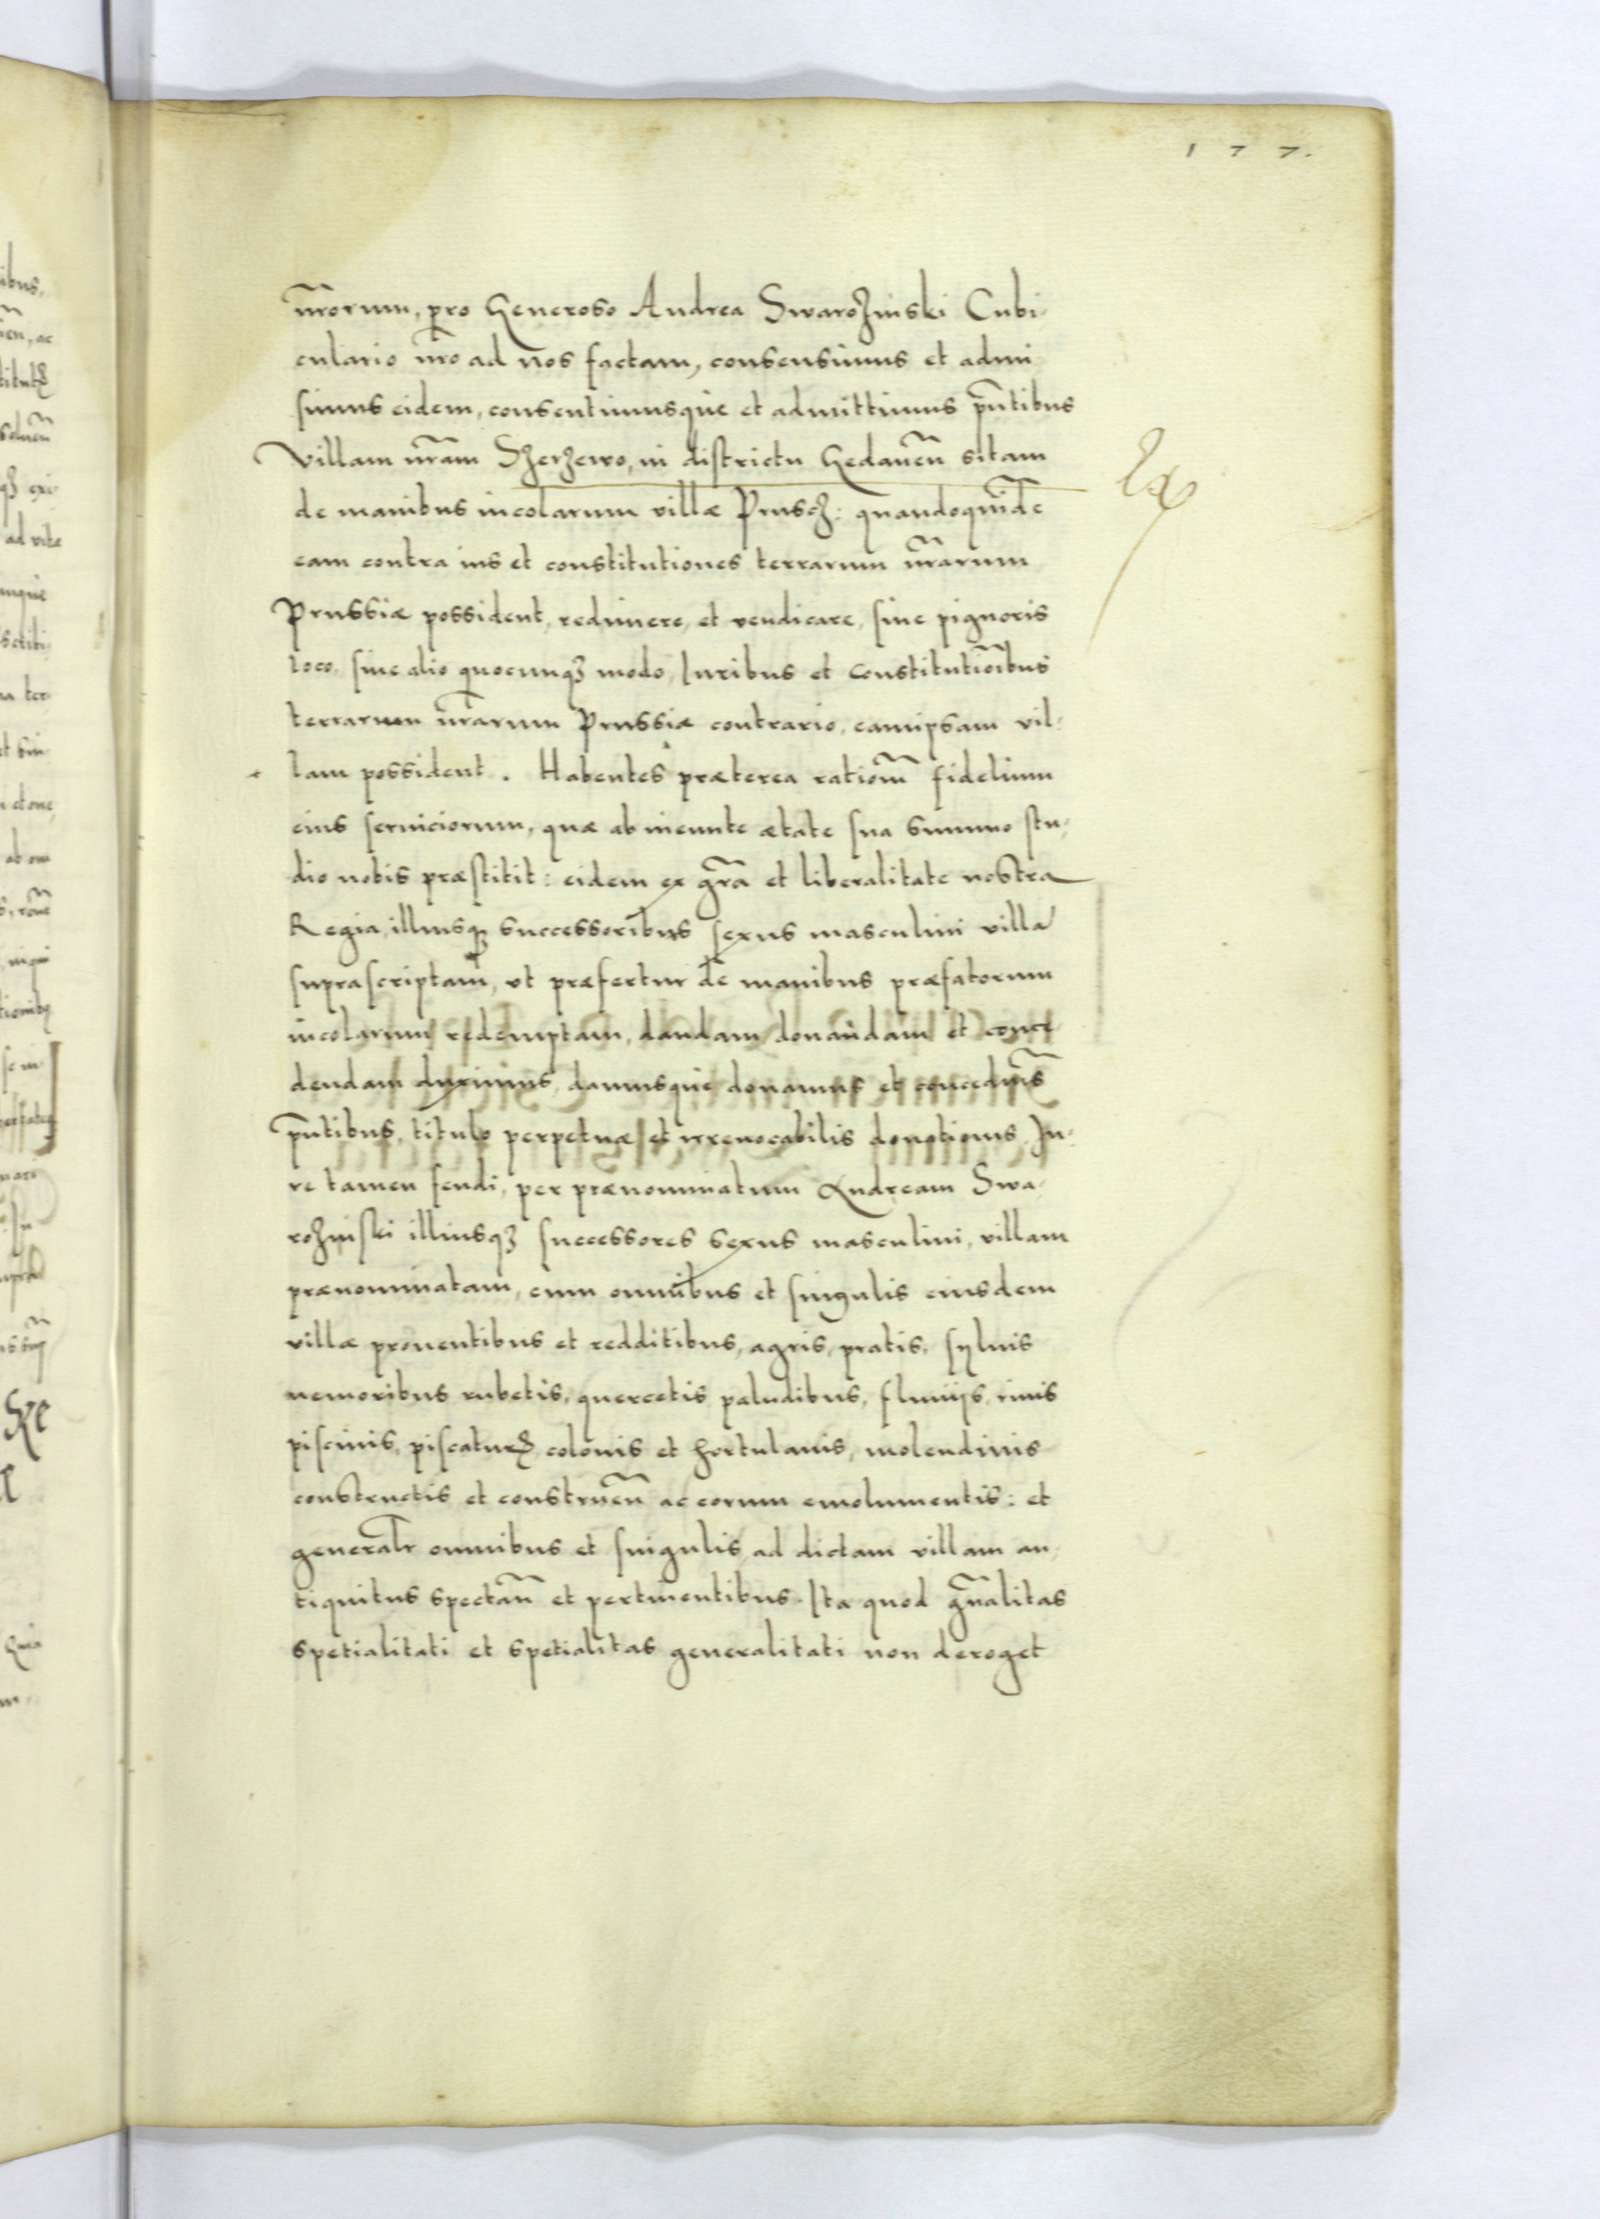 177.
nr̃orum, pro Generoso Andrea Swarozinski Cubi-
culario nr̃o ad nos factam, consensimus et admi
simus eidem, consentimusque et admittimus pñtibus
Villam nr̃am Szerzewo, in districtu Gedaneñ sitam
de manibus incolarum villæ Prusch: quandoquidẽ
eam contra ius et constitutiones terrarum nr̃arum
Prussiæ possident, redimere, et vendicare, siue pignoris
loco, siue alio quocunqꝫ modo, Iuribus et Constitutiõibus
terrarum nr̃arum Prussiæ contrario, eamipsam vil-
lam possident. Habentes præterea ratiom̃ fidelium
eius seruiciorum, quæ ab ineunte ætate sua summo stu-
dio nobis præstitit: eidem ex gr̃a et liberalitate nostra
Regia, illiusqꝫ successoribus sexus masculini villã
suprascriptam, ut præfertur de manibus præfatorum
incolarum redemptam, dandam donandam et conce
dendam duximus, damusque donamus et concedim̃s
pñtibus, titulo perpetuæ et irreuocabilis donotionis Iu-
re tamen feudi, per prænominatum Andream Swa-
rozinski illiusqꝫ successores sexus masculini, villam
prænominatam, cum omnibus et singulis eiusdem
villæ prouentibus et redditibus, agris, pratis, syluis
nemoribus rubetis, quercetis paludibus, fluuijs, riuis
piscinis, piscaturꝭ colonis et hortulanis, molendinis
constructis et construeñ ac eorum emolumentis: et
generalr̃ omnibus et singulis, ad dictam villam an-
tiquitus spectañ et pertinentibus. Ita quod gñalitas
spetialitati et spetialitas generalitati non deroget